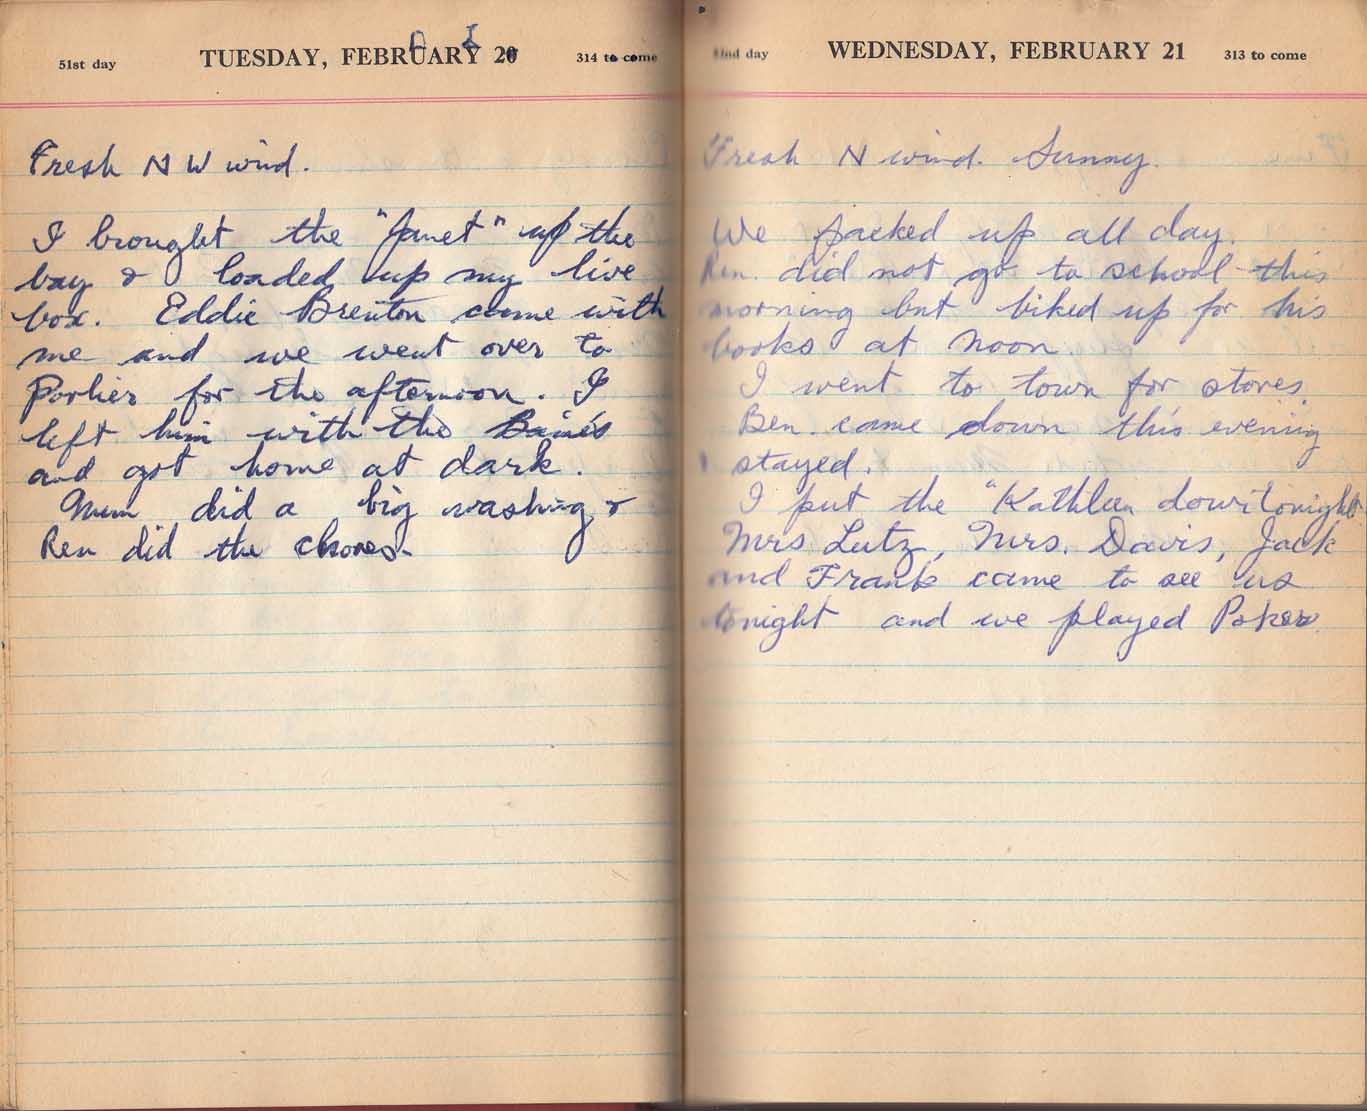 51st day TUESDAY, FEBRUARY 20 314 to come
Fresh N W wind.
I brought the "Janet" up the
bay & loaded up my live
box. Eddie Brenton came with
me and we went over to
Porlier for the afternoon. I
left him with the Baines
and got home at dark.
Mum did a big washing &
Ren did the chores.
52nd day WEDNESDAY, FEBRUARY 21 313 to come
Fresh N wind. Sunny.
We packed up all day.
Ren. did not go to school this
morning but biked up for his
books at noon.
I went to town for stores.
Ben. came down this evening
stayed.
I put the "Kathleen down tonight
Mrs Lutz, Mrs. Davis, Jack
and Frank came to see us
tonight and we played Poker.